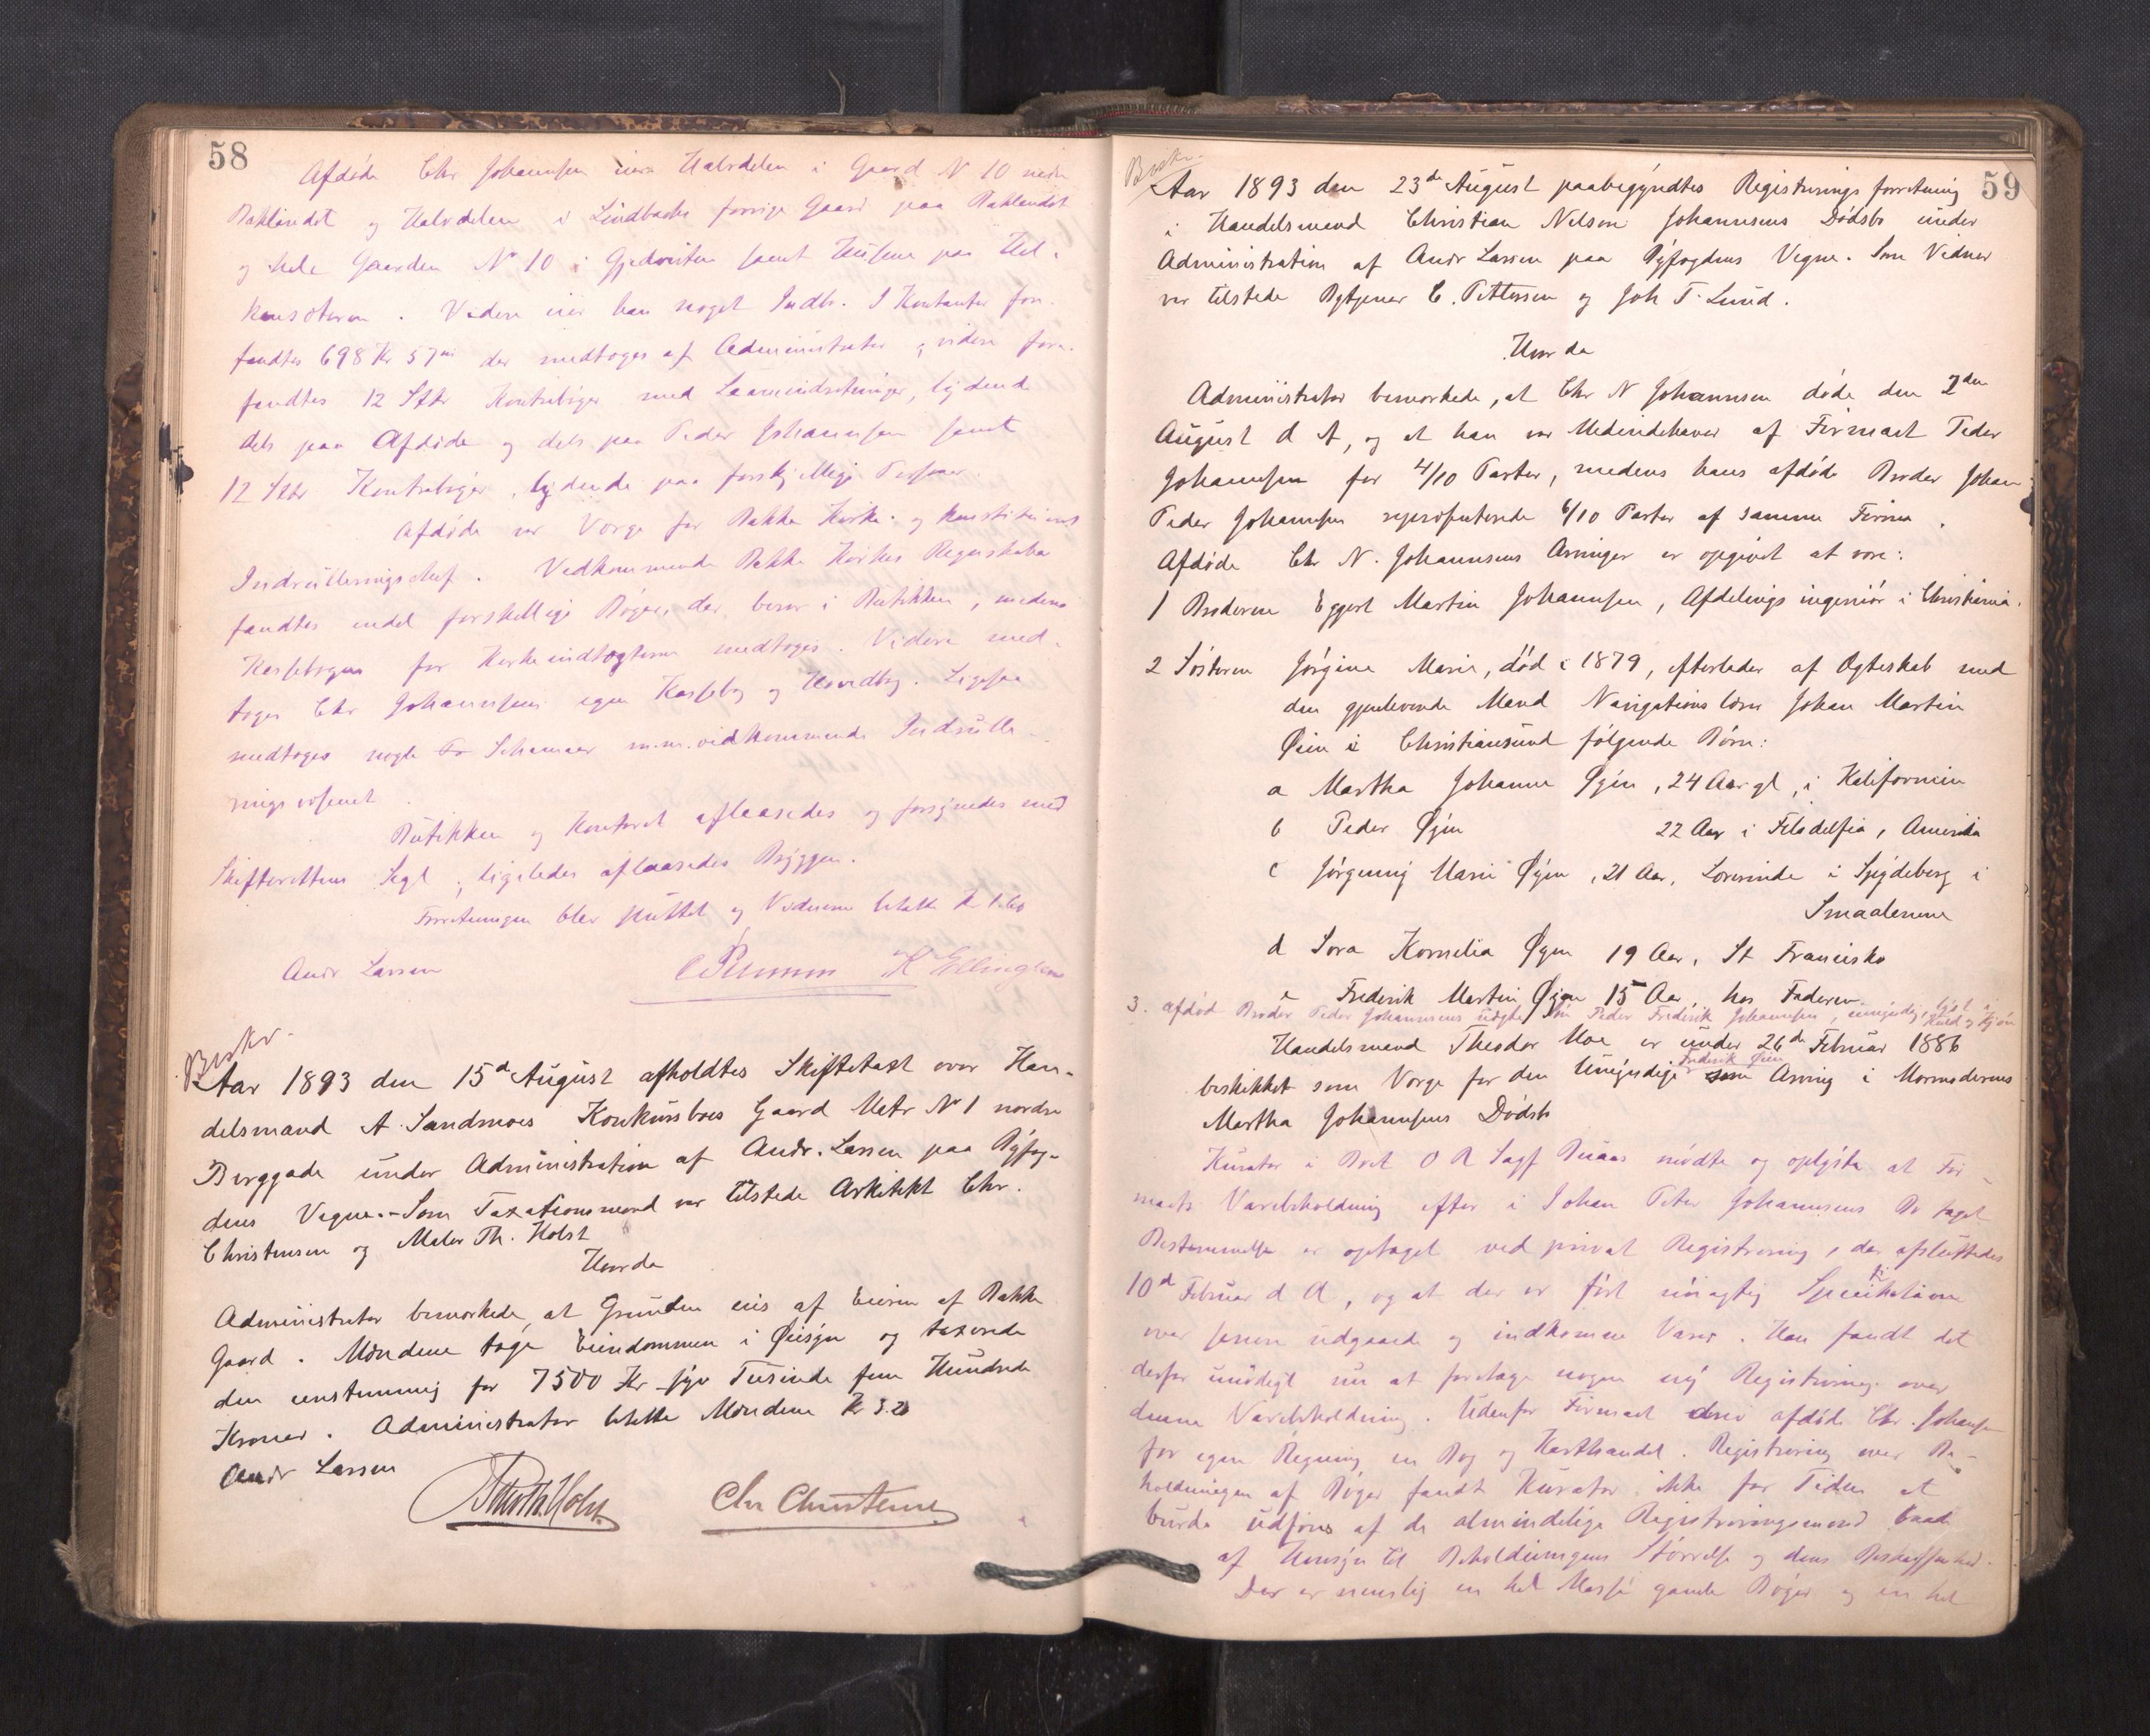 58
Afdøde Chr Johannsen eier Halvdelen i Gaard N 10 nedre
Baklandet og Halvdelen i Lindbacks forrige Gaard paa Baklandet
og hele Gaarden No 10 i Gjedvisten samt Husene paa
. Videre eier han noget Indb. I Kontanter fore
fandtes 698 Kr 57 der medtoges af Administrator, videre fore-
fandtes 12 Stkr Kontrabøger med Laaneindretninger, lydende
dels paa Afdøde og dels paa Peder Johannsen samt
12 Stkr Kontrabøger, lydende paa forskjellige Personer.
Afdøde var Værge for Bakke Kirke og konstitueret
Indrulleringschef. Vedkommende Bakke Kirkes Regnskaber
fandtes endel forskellige Bøger, der beror i Butikken, medens
Kassebogen for Kirkeindtægterne medtoges. Videre med-
toges Chr Johannsens egen Kassebog og Hovedbog. Ligesaa
medtoges nogle Schemaer m.m. vedkommende Indrulle-
ringsvæsenet.
Butikken og Kontoret aflaasedes og forsynedes med
Skifterettens Segl, ligeledes aflaasedes Bryggen.
Forretningen blev sluttet og Vidnerne betalte Kr 1.60
Andr Larsen
H Ellingsen
Beskr.
Aar 1893 den 15d August afholdtes Skiftetaxt over Han-
delsmand A. Sandmoes Konkursboes Gaard Matr No 1 nordre
Berggade under Administration af Andr. Larsen paa Byfog-
dens Vegne. - Som Taxationsmænd var tilstede Arkitekt Chr.
Christensen og Maler Th. Holst
Hvorda
Administrator bemærkede, at Grunden eies af Eieren af Bakke
Gaard. Mændene toge Eiendommen i Øiesyn og taxerede
den enstemmig for 7500 Kr syv Tusinde fem Hundrede
Kroner. Administrator betalte Mændene Kr 3.20
Andr Larsen
Th. Holst. Chr Christensen
59
Beskr.
Aar 1893 den 23de August paabegyndtes Registreringsforretning
i Handelsmand Christian Nelson Johannsens Dødsbo under
Administration af Andr Larsen paa Byfogdens Vegne. Som Vidner
var tilstede Bytjener C. Pettersen og Joh T. Lund.
Hvorda
Administrator bemærkede, at Chr N Johannsen døde den 2den
August d A, og at han var Medindehaver af Firmaet Peder
Johannsen for 4/10 Parter, medens hans afdøde Broder Johan
Peder Johannsen repræsenterede 6/10 Parter af samme Firma.
Afdøde Chr N. Johannsens Arvinger er opgivet at være:
1 Broderen Eggert Martin Johannsen, Afdelingsingeniør i Christiania.
2 Søsteren Jørgine Marie, død i 1879, efterleder af Ægteskab med
den gjenlevende Mand Navigationslærer Johan Martin
Øien i Christiansund følgende Børn:
a Martha Johanne Øyen, 24 Aar gl, i Kalifornien
b Peder Øyen 22 Aar i Filadelfia, Amerika
c Jørgenny Marie Øyen, 21 Aar, Lærerinde i Spydeberg i
Smaalenene
d Sora Kornelia Øyen 19 Aar, St Francisko
e Frederik Martin Øyen 15 Aar, hos Faderen.
3. afdød Broder Peder Johannsens Søn Peder Frederik Johannsen, umyndig,
Handelsmand Theodor Moe er under 26de Februar 1886
beskikket som Værge for den Umyndige Frederik Øien som Arving i Mormoderens
Martha Johannsens Dødsbo
Kurator i Boet O R Sagf Buaas mødte og oplyste at Fir-
maets Varebeholdning efter i Johan Peter Johannsens Bo taget
Bestemmelse er optaget ved privat Registrering, der afsluttedes
10d Februar d A, og at der er ført nøiagtig Specifikation
over senere udgaaede og indkomne Varer. Han fandt det
derfor unødigt nu at foretage nogen ny Registrering over
denne Varebeholdning. Udenfor Firmaet drev afdøde Chr. Johannsen
for egen Regning en Bog og Karthandel. Registrering over Be-
holdningen af Bøger fandt Kurator ikke for Tiden at
burde udføres af de almindelige Registreringsmænd baade
af Hensyn til Beholdningens Størrelse og dens Beskaffenhed.
Der er nemlig en hel Masse gamle Bøger og en hel